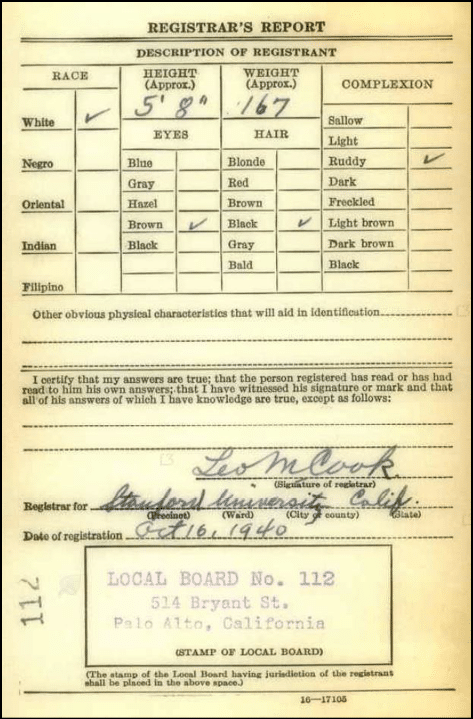 REGISTRAR'S REPORT
DESCRIPTION OF REGISTRANT
RACE
HEIGHT (Approx.)
WEIGHT (Approx.)
COMPLEXION
5' 8"
167
White ✓
EYES
HAIR
Sallow
Light
Negro
Blue
Blonde
Ruddy ✓
Gray
Red
Dark
Oriental
Hazel
Brown
Freckled
Brown ✓
Black ✓
Light brown
Indian
Black
Gray
Dark brown
Bald
Black
Filipino
Other obvious physical characteristics that will aid in identification
I certify that my answers are true; that the person registered has read or has had
read to him his own answers; that I have witnessed his signature or mark and that
all of his answers of which I have knowledge are true, except as follows:
Leo M Cook
(Signature of registrar)
Registrar for Stanford University Calif.
(Precinct) (Ward) (City or county) (State)
Date of registration Oct 16, 1940
112
LOCAL BOARD No. 112
514 Bryant St.
Palo Alto, California
(STAMP OF LOCAL BOARD)
(The stamp of the Local Board having jurisdiction of the registrant
shall be placed in the above space.)
16—17105